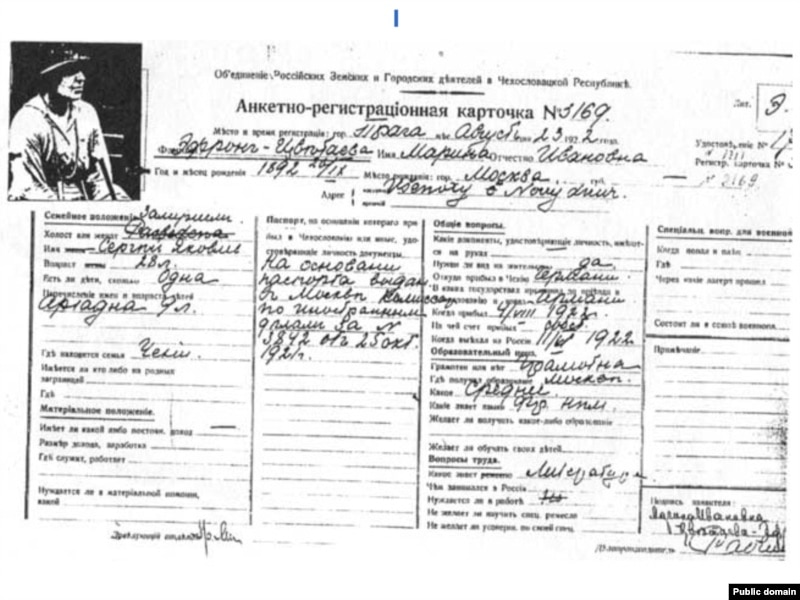 Объединеніе Россійских Земских и Городских дѣятелей в Чехословацкой Республикѣ.
Анкетно-регистраціонная карточка № 3169.
Лит. Э.
Мѣсто и время регистраціи: гор. Прага мѣс. Августъ 23 1922 года.
Удостовѣреніе №
Эфронъ-Цвѣтаева Имя Марина Отчество Ивановна
Регистр. карточка №
№ 3169
Год и мѣсяц рожденія 1892 IX Мѣсто рожденія: гор. Москва губ.
Адрес Všenory č Nový dnur.
Семейное положеніе Замужем
Холост или женат
Имя Сергѣй Яковлев
Возраст 28 л.
Есть ли дѣти, сколько Одна
Перечисленіе имен и возраста дѣтей
Аріадна 9 л.
Гдѣ находится семья Чехіи.
Имѣется ли кто либо из родных
заграницей
Гдѣ
Матеріальное положеніе.
Имѣет ли какой либо постоян. доход
Размѣр дохода, заработка
Гдѣ служит, работает
Нуждается ли в матеріальной помощи,
какой
Паспорт, на основаніи котораго при
был в Чехословакію или иные, удо-
стовѣряющіе личность документы.
На основаніи
паспорта выдан.
въ Москвѣ Комисс.
по иностранным
дѣламъ за №
3842 отъ 25 окт.
1921 г.
Общіе вопросы.
Какіе документы, удостовѣряющіе личность, имѣют-
ся на руках
Нужен ли вид на жительство да
Откуда прибыл в Чехію Германіи
В каких государствах проживал до пріѣзда в
Германіи
Когда прибыл 1/VIII 1922
На чей счет прибыл собст.
Когда выѣхал из Россіи 1922
Образовательный ценз.
Грамотен или нѣт Грамотна
Гдѣ получил образованіе Москов.
Какое Среднее
Какіе знает языки Фр. нѣм.
Желает ли получить какое-либо образованіе
Желает ли обучать своих дѣтей
Вопросы труда.
Какое знает ремесло Литература
Чѣм занимался в Россіи
Нуждается ли в работѣ
Не желает ли изучить спец. ремесло
Не желает ли усоверш. по своей спец.
Спеціальн. вопр. для военной
Когда попал в плѣн
Гдѣ
Через какіе лагеря прошел
Состоит ли в союзѣ военноплѣн.
Примѣчаніе
Подпись заявителя:
Марина Ивановна
Цвѣтаева-Эф
Public domain